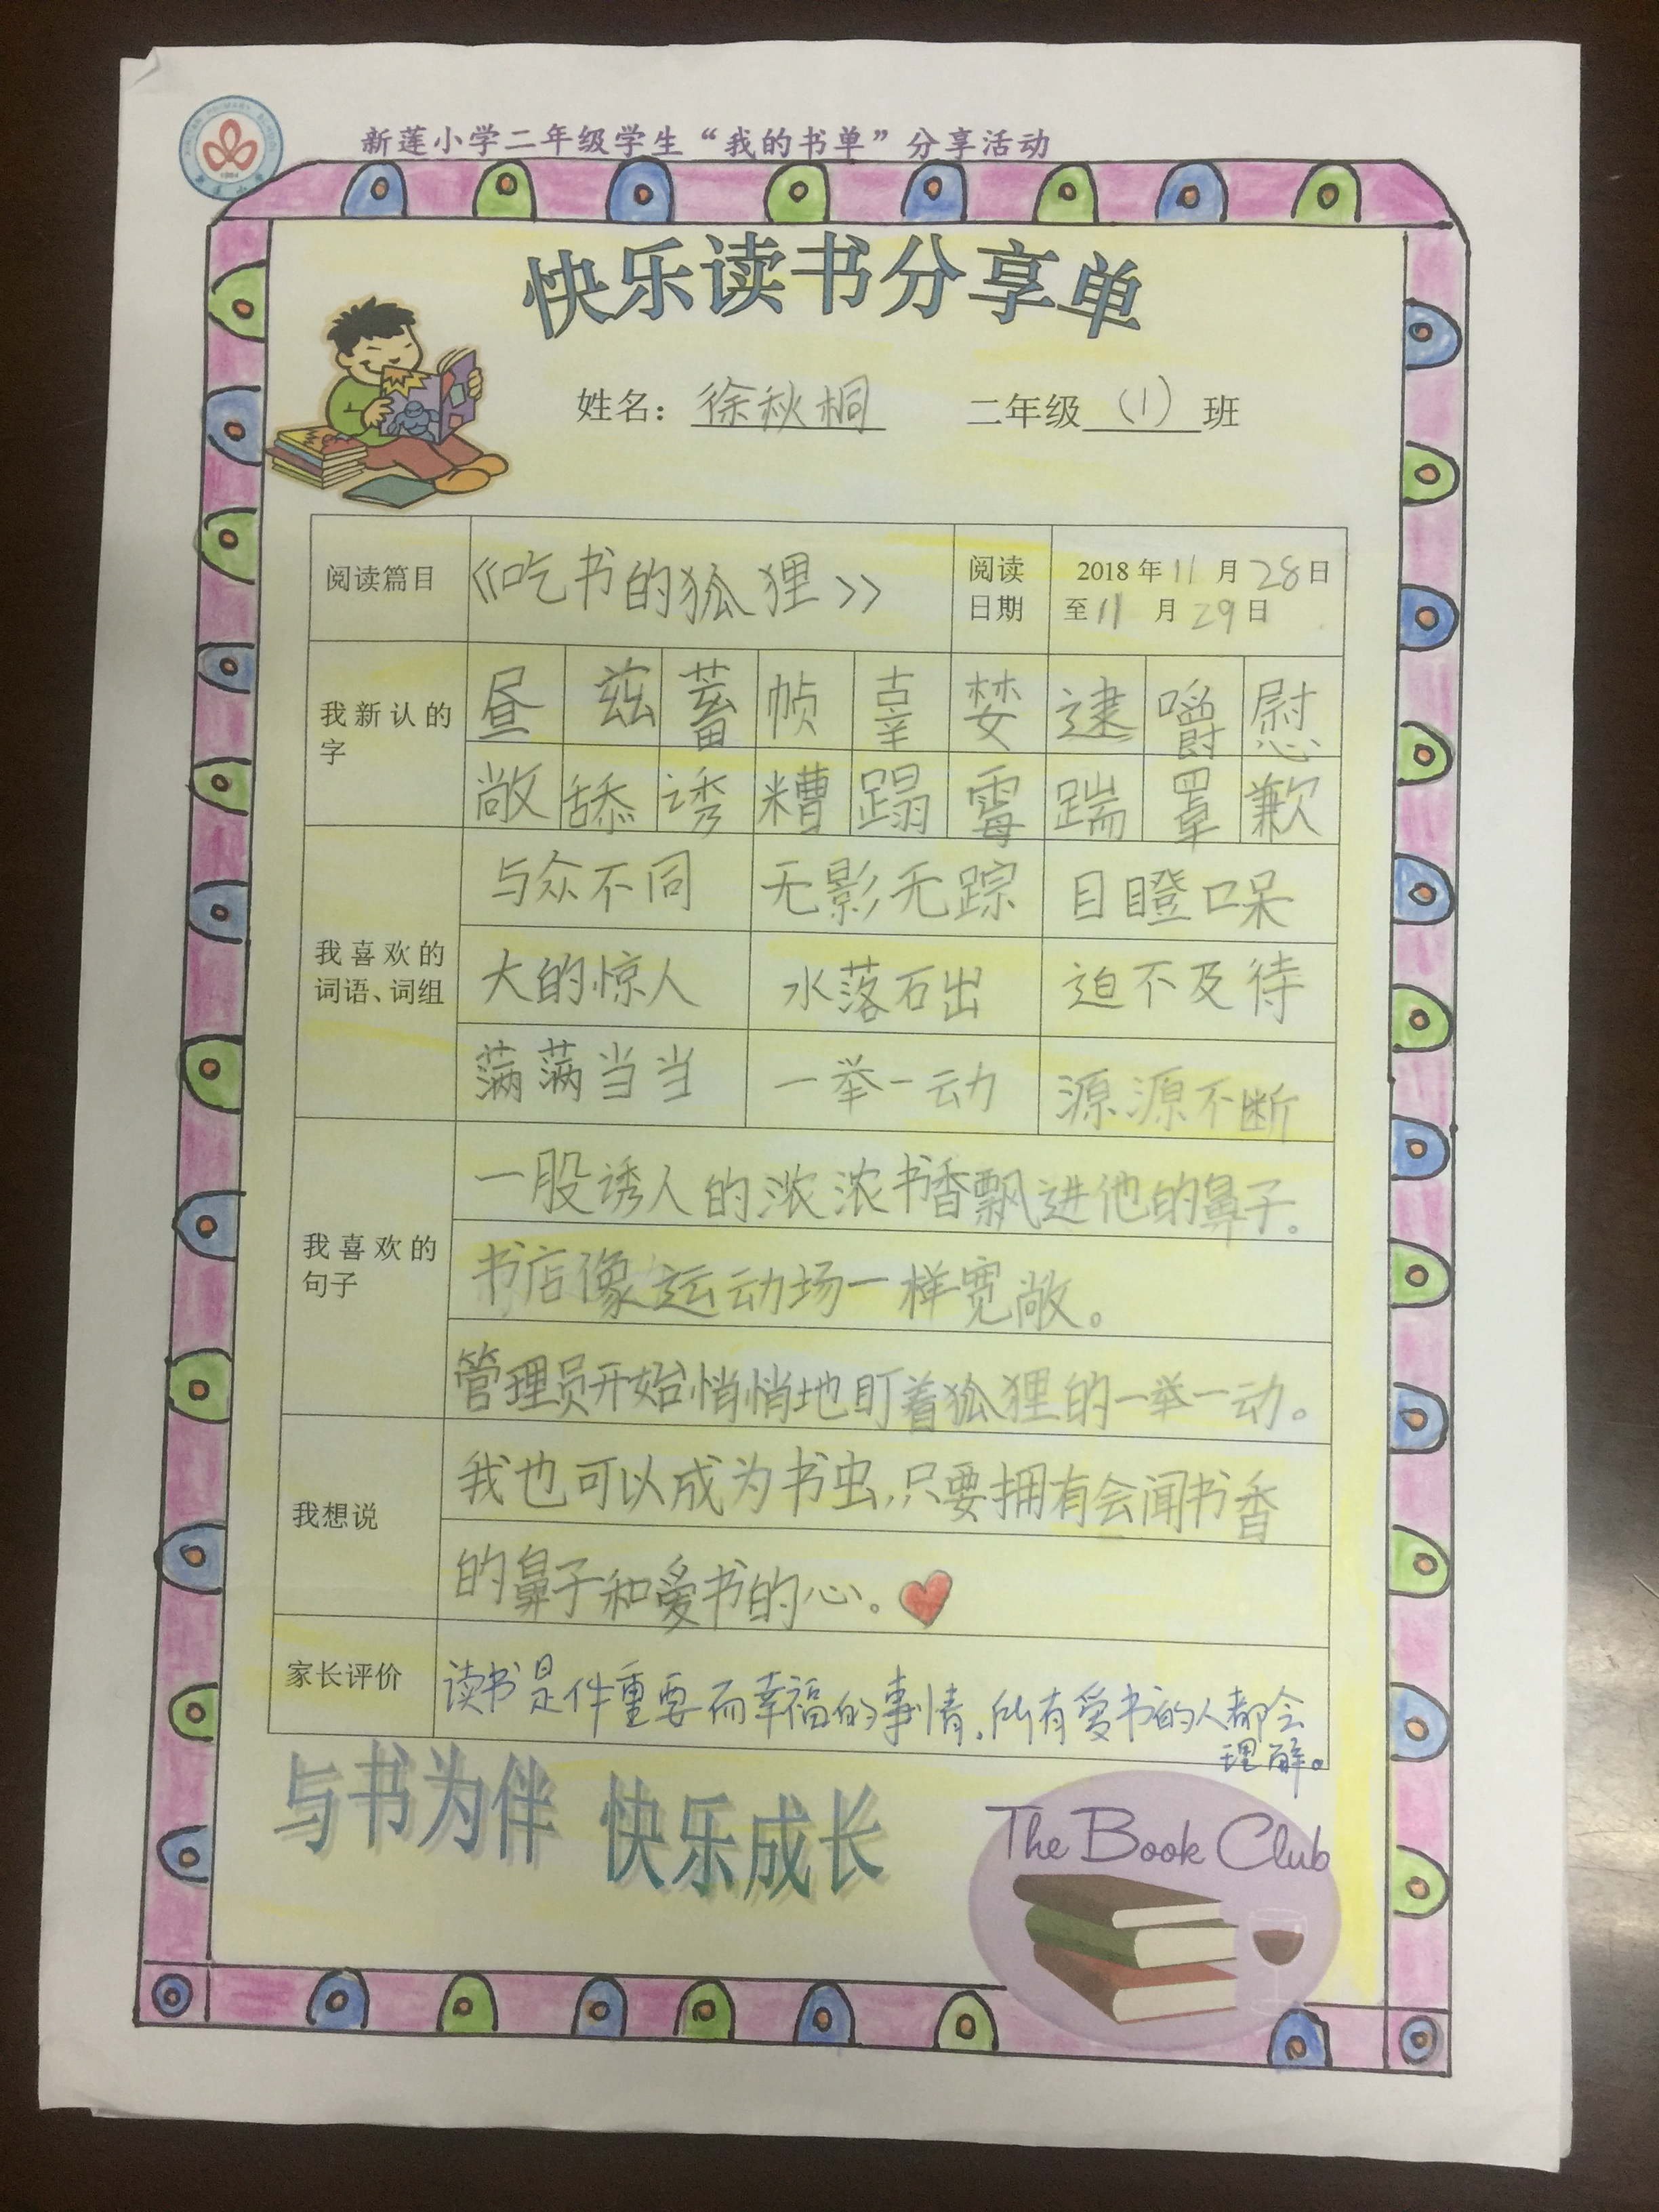 新莲小学二年级学生“我的书单”分享活动
快乐读书分享单
姓名：徐秋桐 二年级（1）班
阅读篇目 《吃书的狐狸》 阅读日期 2018年11月28日至11月29日
我新认的字 昼 兹 蓄 帧 辜 婪 逮 嚼 慰
敞 舔 诱 糟 蹋 霉 踹 罩 歉
我喜欢的词语、词组 与众不同 无影无踪 目瞪口呆
大的惊人 水落石出 迫不及待
满满当当 一举一动 源源不断
我喜欢的句子 一股诱人的浓浓书香飘进他的鼻子。
书店像运动场一样宽敞。
管理员开始悄悄地盯着狐狸的一举一动。
我想说 我也可以成为书虫，只要拥有会闻书香
的鼻子和爱书的心。
家长评价 读书是件重要而幸福的事情，所有爱书的人都会
理解。
与书为伴 快乐成长
The Book Club